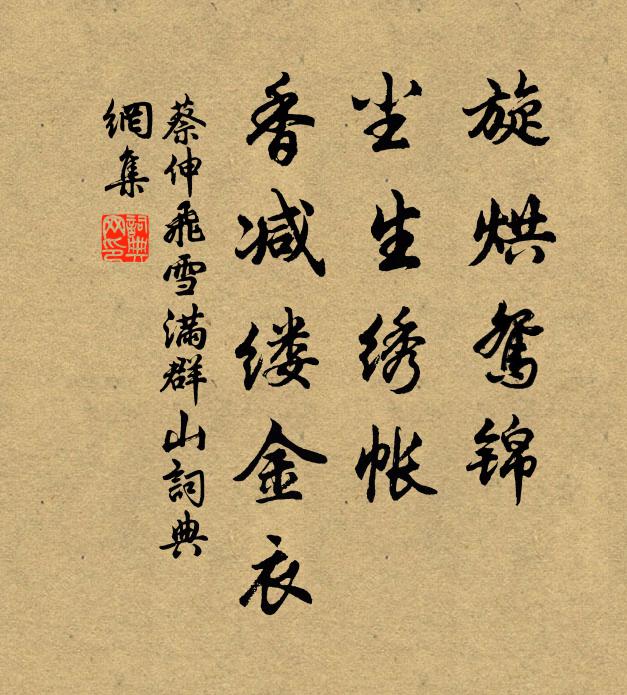 旋烘鸳锦
尘生绣帐
香减缕金衣
蔡伸飛雪滿群山詞典
網集
詞典网印